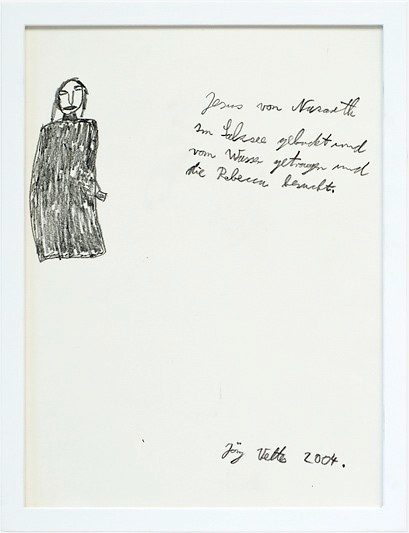 Jesus von Nazareth
im Salzsee gebadet und
vom Wasser getragen und
die Rebecca besucht.
Jörg 2004.